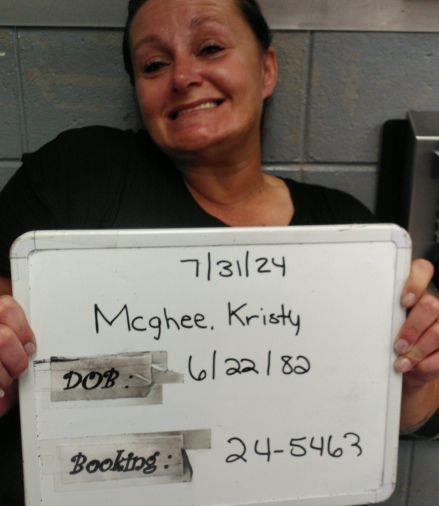 7/31/24
Mcghee, Kristy
DOB: 6/22/82
Booking: 24-5463